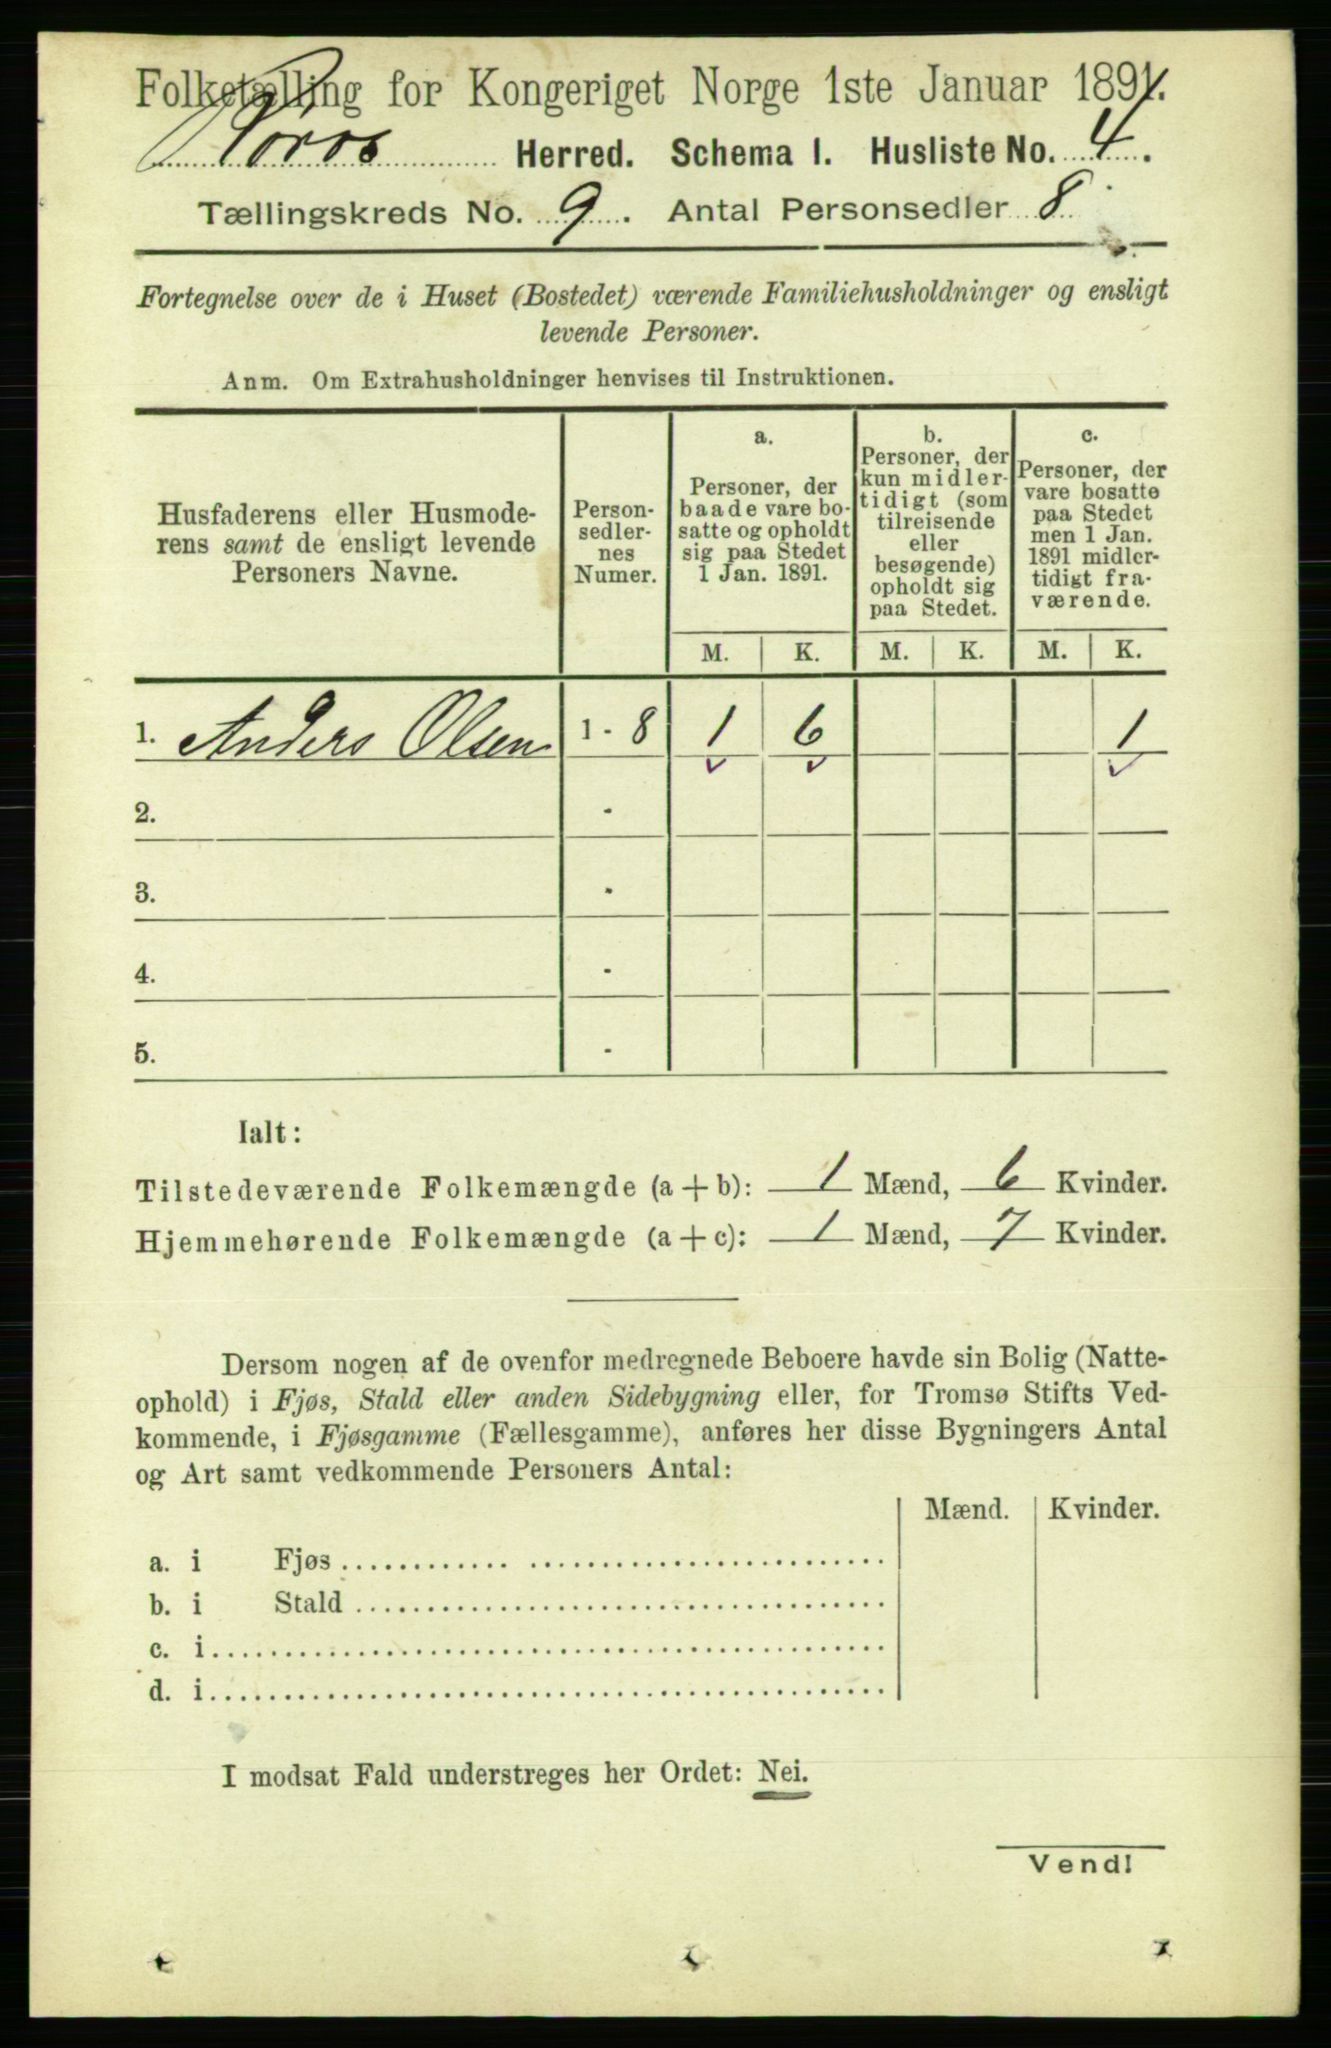 Folketælling for Kongeriget Norge 1ste Januar 1891.
Røros Herred. Schema I. Husliste No. 4.
Tællingskreds No. 9. Antal Personsedler 8
Fortegnelse over de i Huset (Bostedet) værende Familiehusholdninger og ensligt
levende Personer.
Anm. Om Extrahusholdninger henvises til Instruktionen.
Husfaderens eller Husmode-
rens samt de ensligt levende
Personers Navne.
Person-
sedler-
nes
Numer.
a.
Personer, der
baade vare bo-
satte og opholdt
sig paa Stedet
1 Jan. 1891.
b.
Personer, der
kun midler-
tidigt (som
tilreisende
eller
besøgende)
opholdt sig
paa Stedet.
c.
Personer, der
vare bosatte
paa Stedet
men 1 Jan.
1891 midler-
tidigt fra-
værende.
M. K. M. K. M. K.
1. Anders Olsen 1 - 8 1 6 1
2. -
3. -
4. -
5. -
Ialt:
Tilstedeværende Folkemængde (a + b): 1 Mænd, 6 Kvinder.
Hjemmehørende Folkemængde (a + c): 1 Mænd, 7 Kvinder.
Dersom nogen af de ovenfor medregnede Beboere havde sin Bolig (Natte-
ophold) i Fjøs, Stald eller anden Sidebygning eller, for Tromsø Stifts Ved-
kommende, i Fjøsgamme (Fællesgamme), anføres her disse Bygningers Antal
og Art samt vedkommende Personers Antal:
Mænd. Kvinder.
a. i Fjøs
b. i Stald
c. i
d. i
I modsat Fald understreges her Ordet: Nei.
Vend!